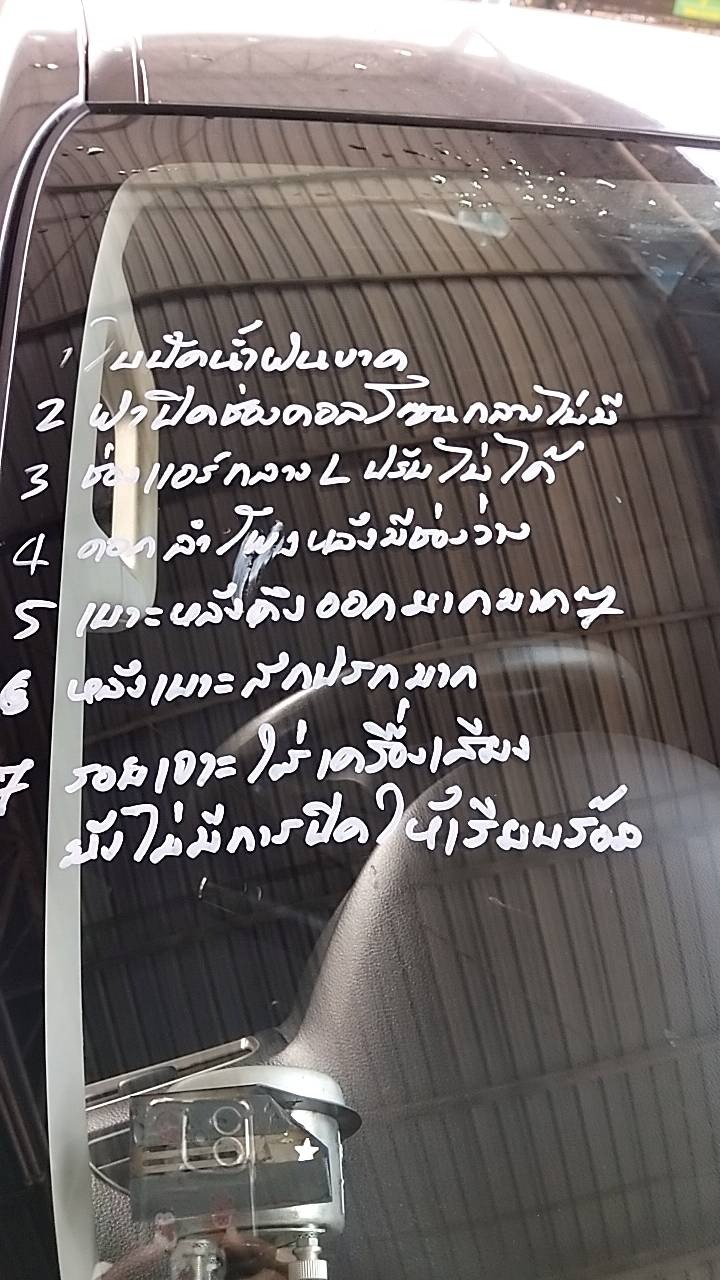 1 ใบปัดน้ำฝนขาด
2 ฝาปิดช่องคอลโซนกลางไม่มี
3 ช่องแอร์กลาง L ปรับไม่ได้
4 ดอกลำโพงหลังมีช่องว่าง
5 เบาะหลังดึงออกยากมากๆ
6 หลังเบาะสกปรกมาก
7 รอยเจาะใส่เครื่องเสียง
ยังไม่มีการปิดให้เรียบร้อย